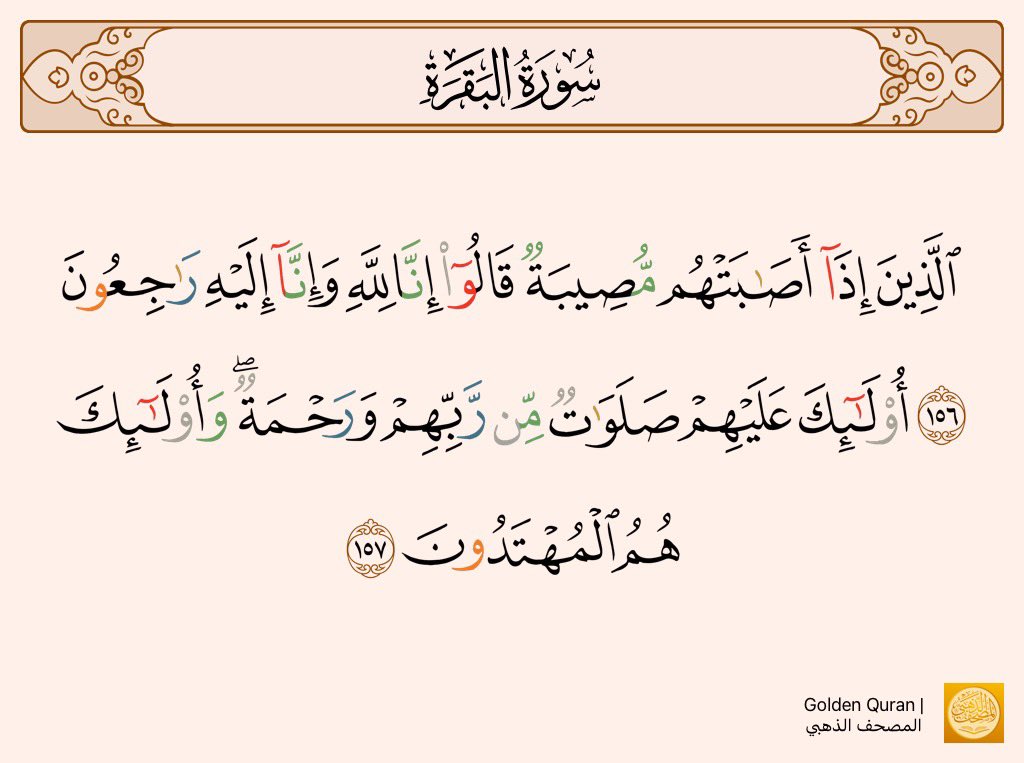 سُورَةُ البَقَرَةِ
ٱلَّذِينَ إِذَآ أَصَـٰبَتْهُم مُّصِيبَةٌ قَالُوٓا۟ إِنَّا لِلَّهِ وَإِنَّآ إِلَيْهِ رَٰجِعُونَ
١٥٦ أُو۟لَـٰٓئِكَ عَلَيْهِمْ صَلَوَٰتٌ مِّن رَّبِّهِمْ وَرَحْمَةٌ ۖ وَأُو۟لَـٰٓئِكَ
هُمُ ٱلْمُهْتَدُونَ ١٥٧
Golden Quran |
المصحف الذهبي